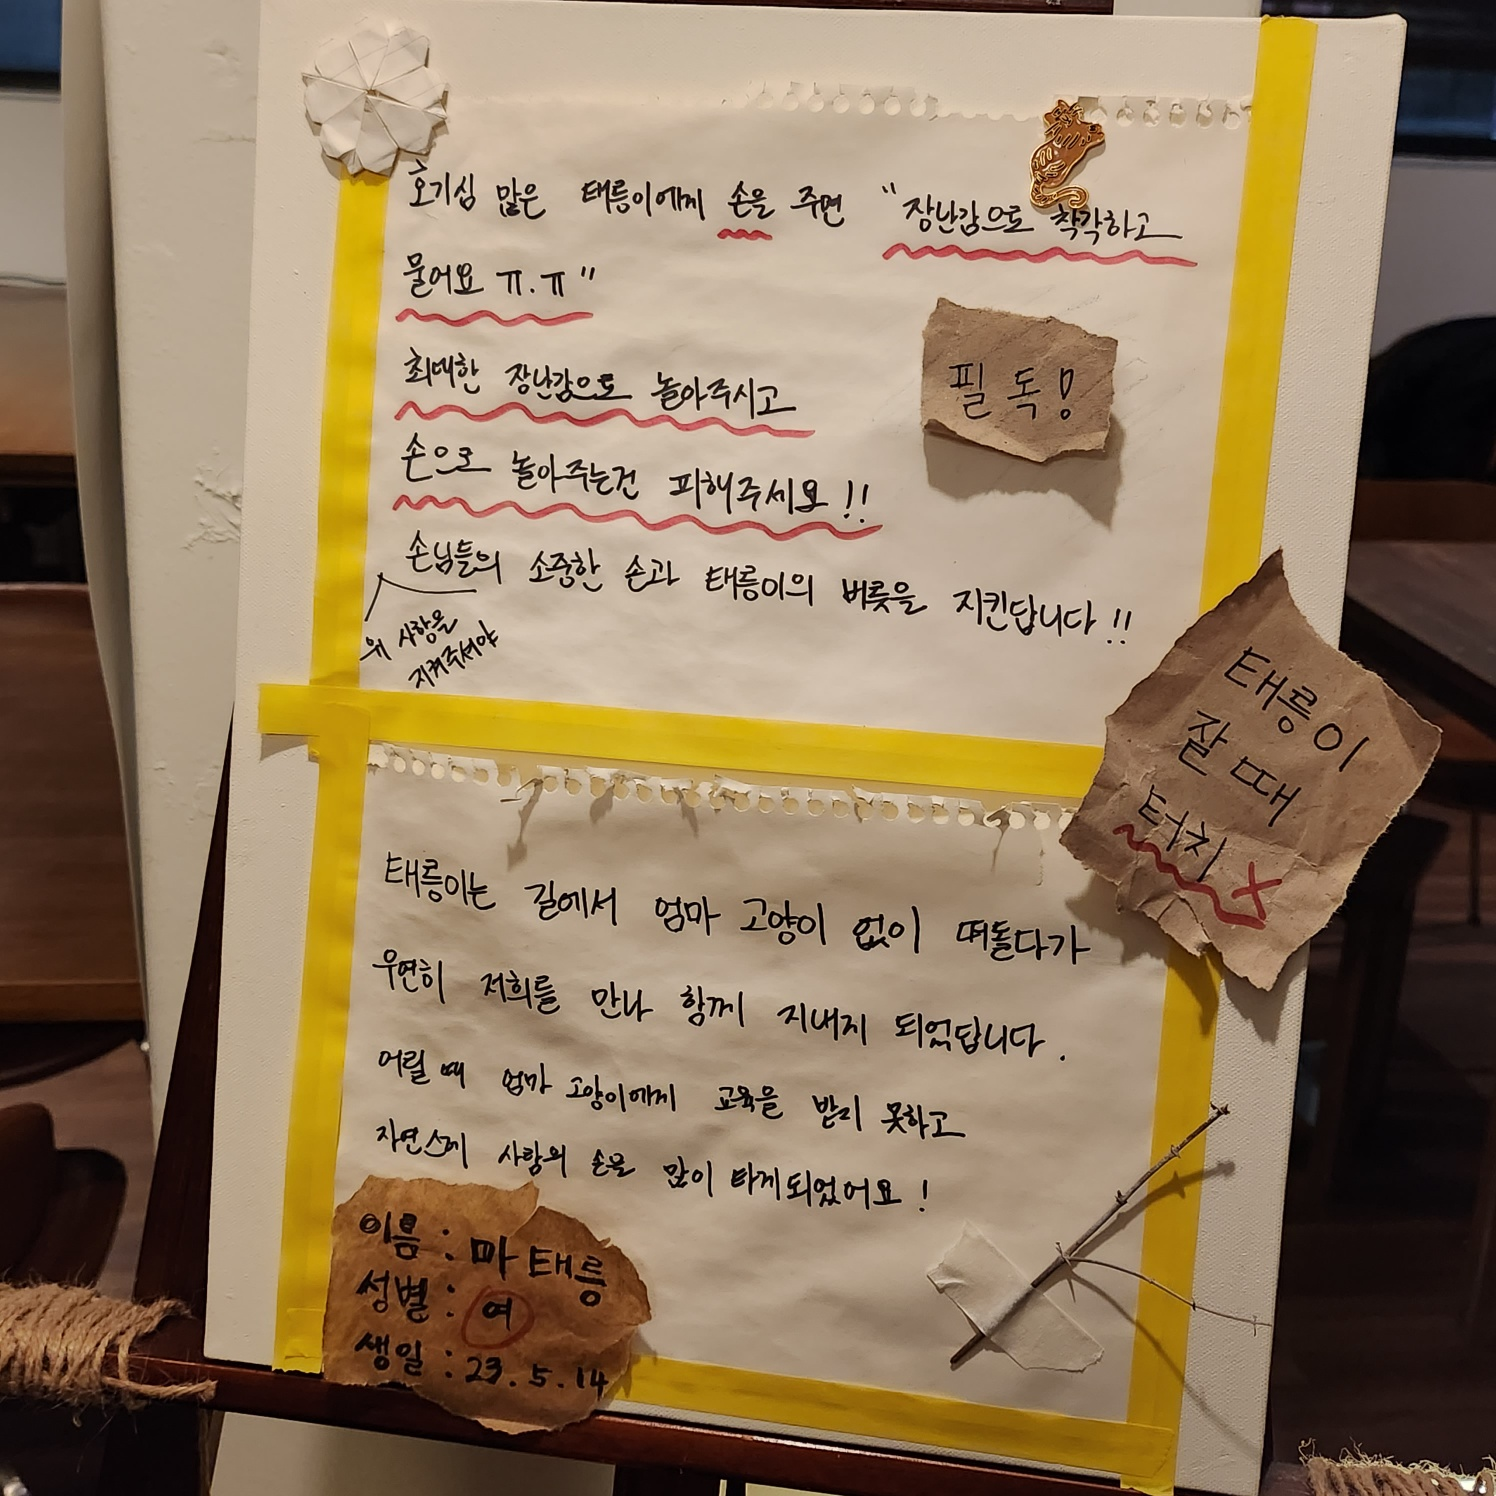 호기심 많은 태릉이에게 손을 주면 "장난감으로 착각하고
물어요 ㅠ.ㅠ"
필독!
최대한 장난감으로 놀아주시고
손으로 놀아주는건 피해주세요!!
손님들의 소중한 손과 태릉이의 버릇을 지킨답니다!!
위 사항을
지켜주셔야
태릉이
잘 때
터치 X
태릉이는 길에서 엄마 고양이 없이 떠돌다가
우연히 저희를 만나 함께 지내게 되었답니다.
어릴 때 엄마 고양이에게 교육을 받지 못하고
자연스레 사람의 손을 많이 타게되었어요!
이름 : 마태릉
성별 : 여
생일 : 23.5.14